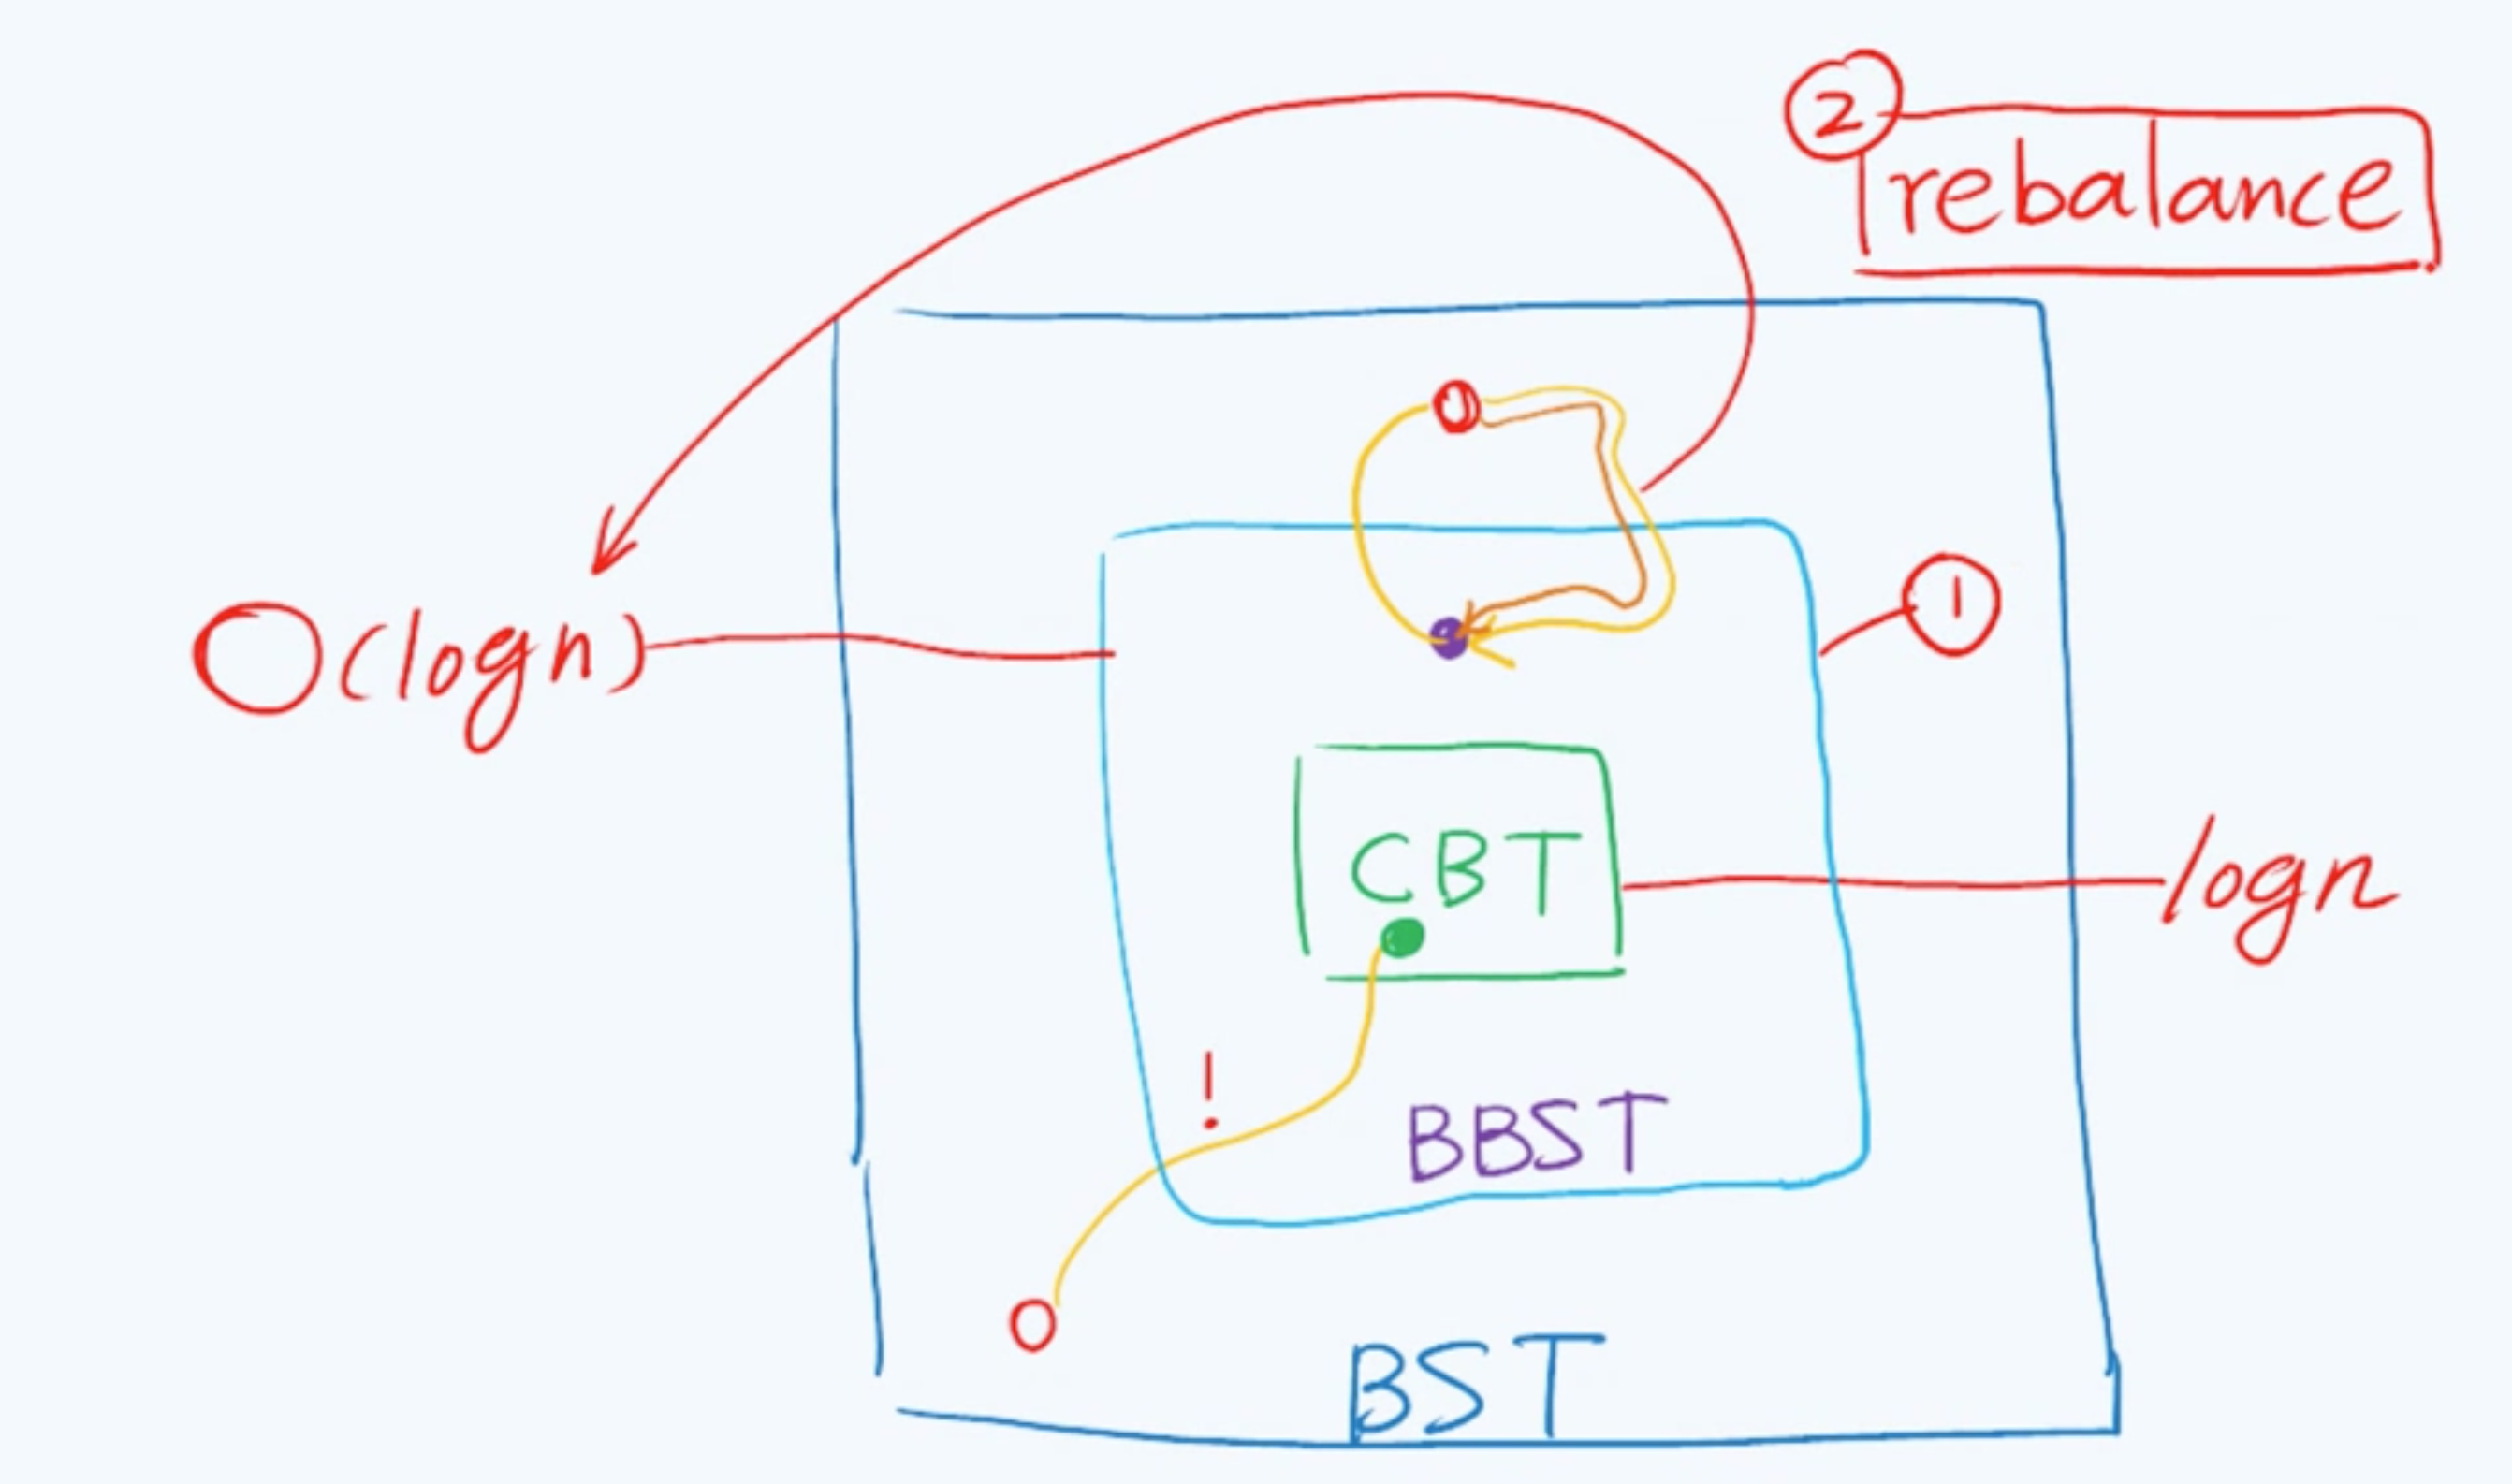 ②
rebalance
①
O(logn)
CBT
logn
!
BBST
BST